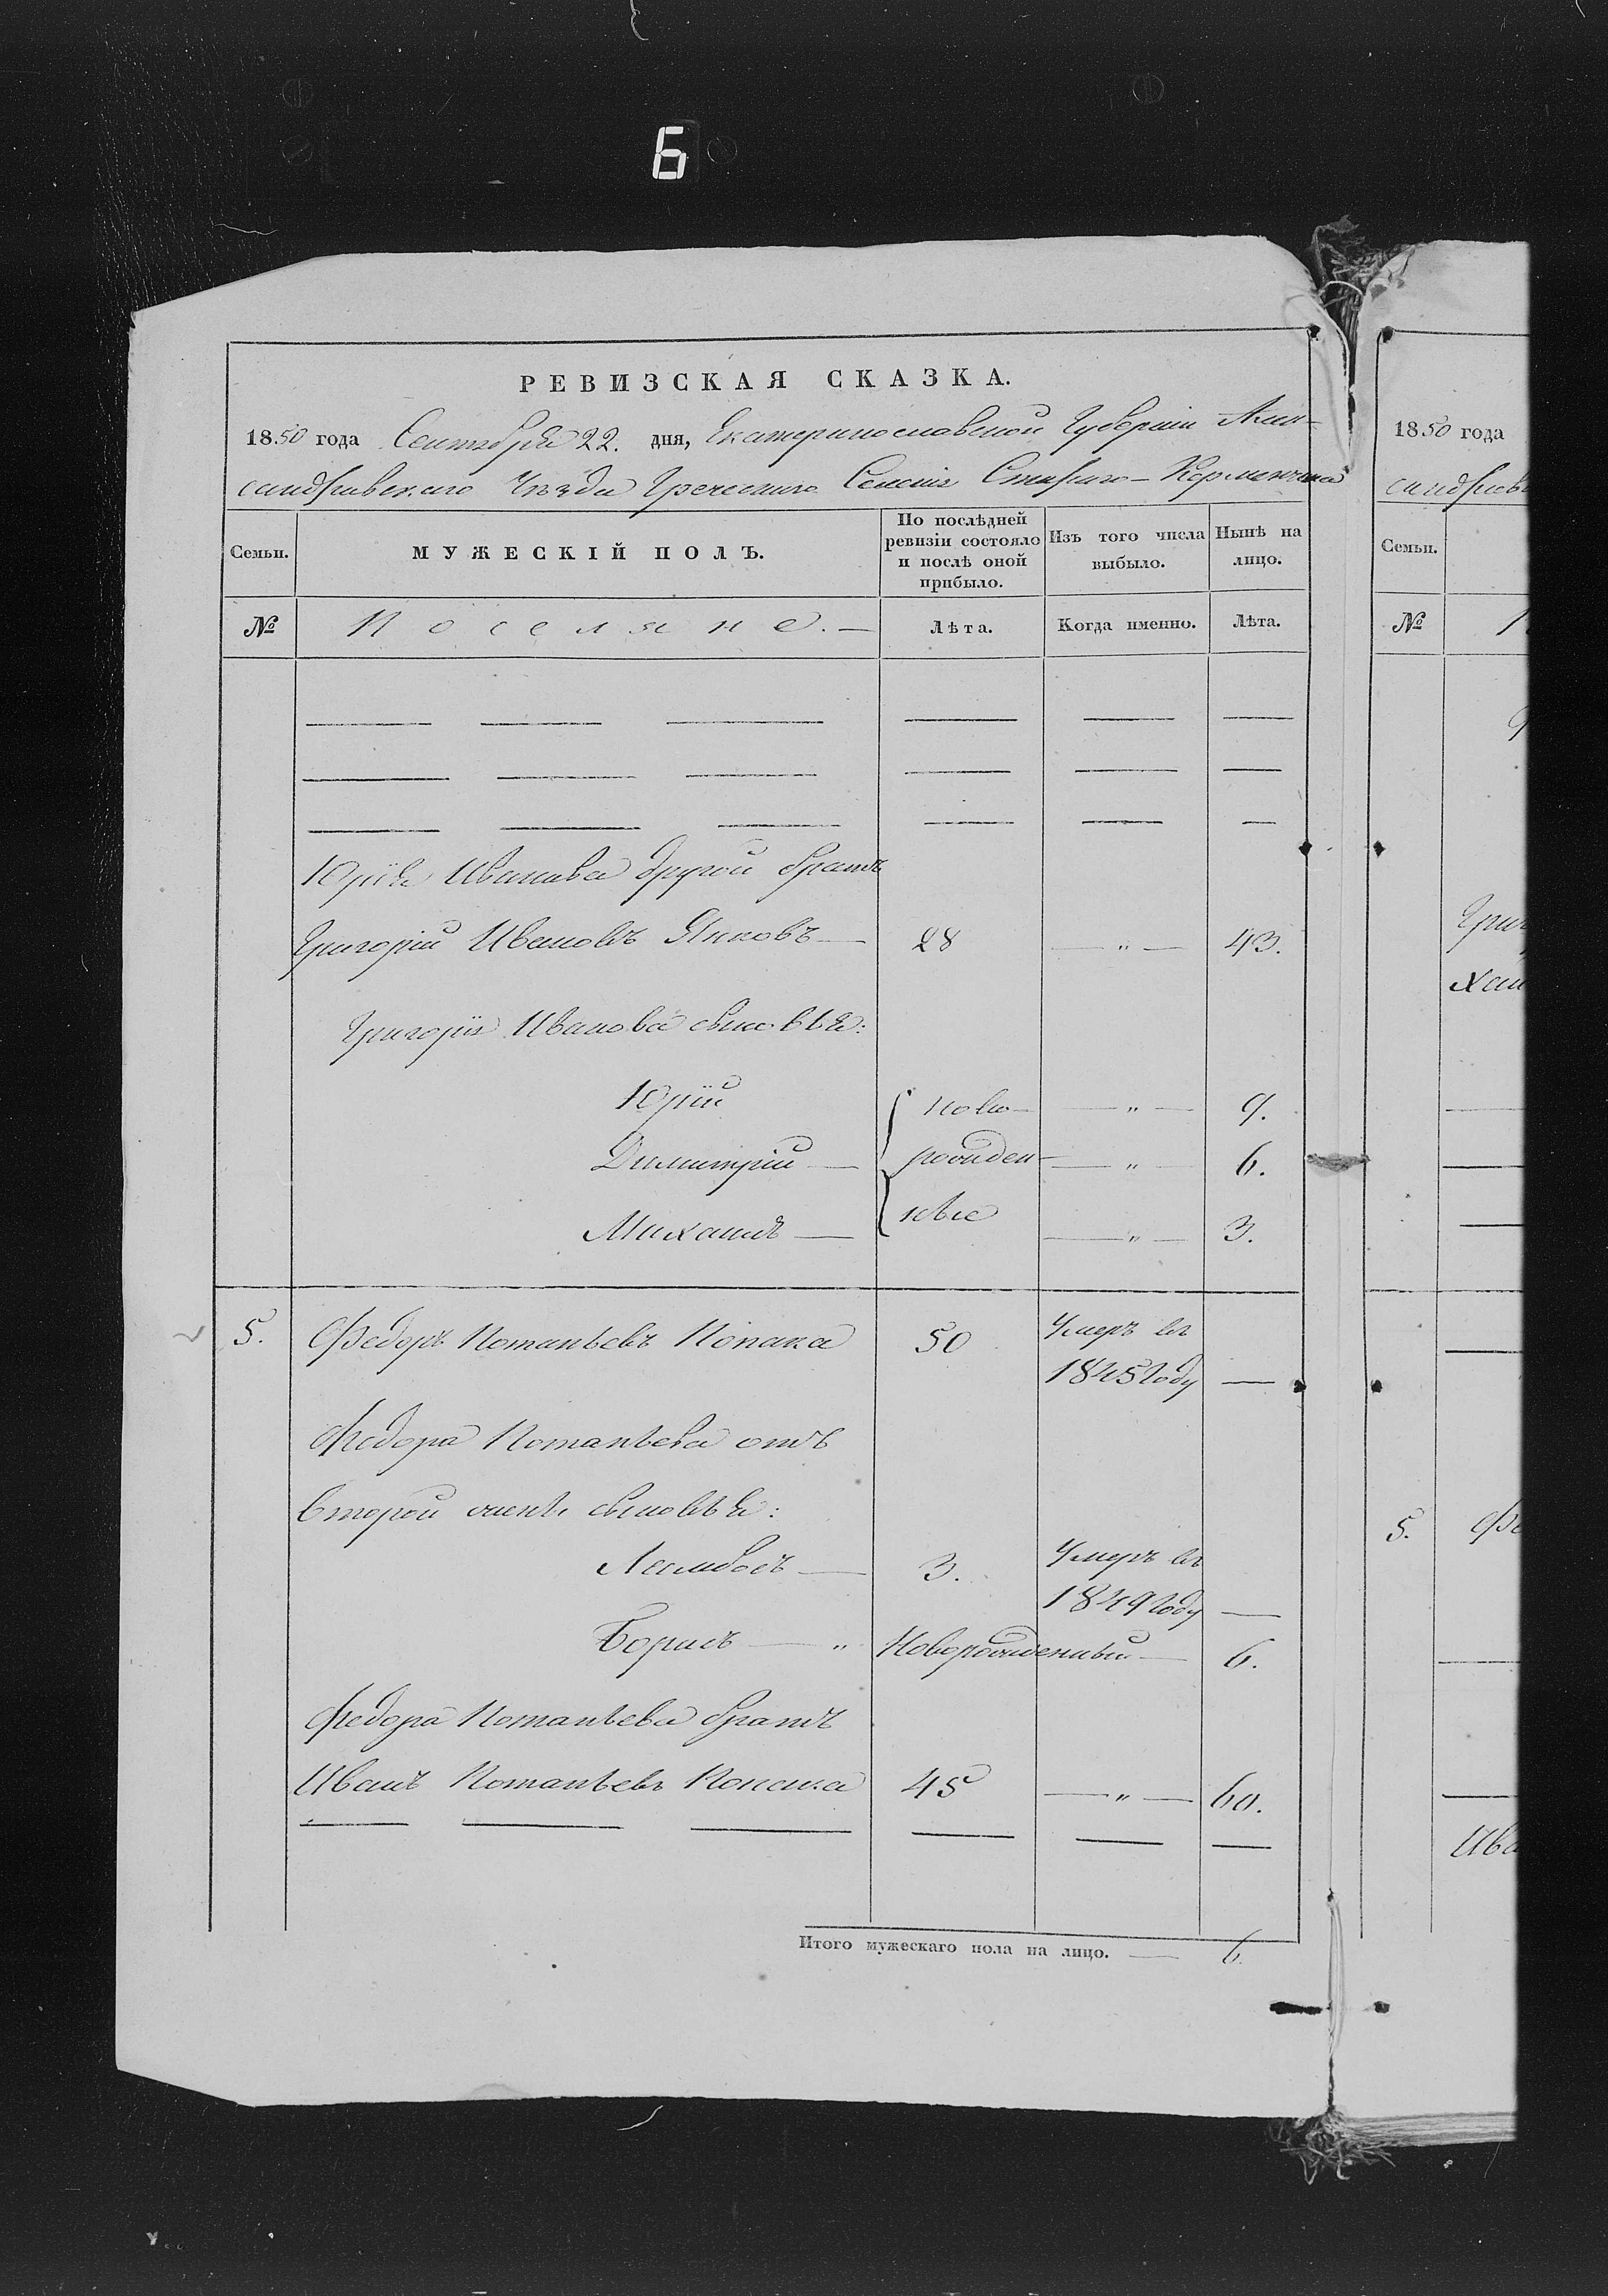 6
РЕВИЗСКАЯ СКАЗКА.
1850 года Сентября 22. дня, Екатеринославской Губерніи Алек-
сандровскаго Уѣзда Греческаго Селенія Стараго-Керменчика
Семьи. МУЖЕСКІЙ ПОЛЪ. По послѣдней ревизіи состояло и послѣ оной прибыло. Изъ того числа выбыло. Нынѣ на лицо.
№ Поселяне. Лѣта. Когда именно. Лѣта.
Юрія Иванова другой братъ
Григорій Ивановъ Яковъ 28 — " — 43.
Григорія Иванова сыновья:
Юрій ново- — " — 9.
Димитрій рожден- — " — 6.
Михаилъ ные — " — 3.
5. Федоръ Потапьевъ Попака 50 Умеръ въ
1845 году —
Федора Потапьева отъ
второй жены сыновья:
Ламбосъ 3. Умеръ въ
1849 году —
Борисъ — " Новорожденный — 6.
Федора Потапьева братъ
Иванъ Потапьевъ Попака 45 — " — 60.
Итого мужескаго пола на лицо. — 6
1850 года
сандровс
Семьи.
№
Григ
Хаи
5. Фе
Ива